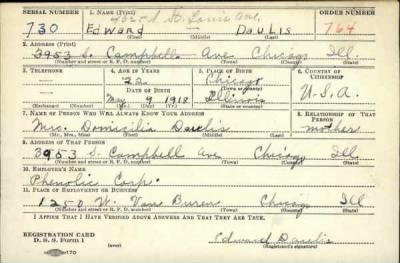 SERIAL NUMBER 1. NAME (Print) ORDER NUMBER
4635 St. Louis Ave.
730 Edward Daulis 764
(First) (Middle) (Last)
2. ADDRESS (Print)
3953 S. Campbell Ave Chicago Ill.
(Number and street or R. F. D. number) (Town) (County) (State)
3. TELEPHONE 4. AGE IN YEARS 5. PLACE OF BIRTH 6. COUNTRY OF CITIZENSHIP
22 Chicago
DATE OF BIRTH (Town or county)
May 9 1918 Illinois U.S.A.
(Exchange) (Number) (Mo.) (Day) (Yr.) (State or country)
7. NAME OF PERSON WHO WILL ALWAYS KNOW YOUR ADDRESS 8. RELATIONSHIP OF THAT PERSON
Mrs. Domicilia Daulis mother
(Mr., Mrs., Miss) (First) (Middle) (Last)
9. ADDRESS OF THAT PERSON
3953 S. Campbell Ave Chicago Ill
(Number and street or R. F. D. number) (Town) (County) (State)
10. EMPLOYER'S NAME
Phenolic Corp.
11. PLACE OF EMPLOYMENT OR BUSINESS
1250 W. Van Buren Chicago Ill
(Number and street or R. F. D. number) (Town) (County) (State)
I AFFIRM THAT I HAVE VERIFIED ABOVE ANSWERS AND THAT THEY ARE TRUE.
REGISTRATION CARD
D. S. S. Form 1 (over) Edward Daulis
(Registrant's signature)